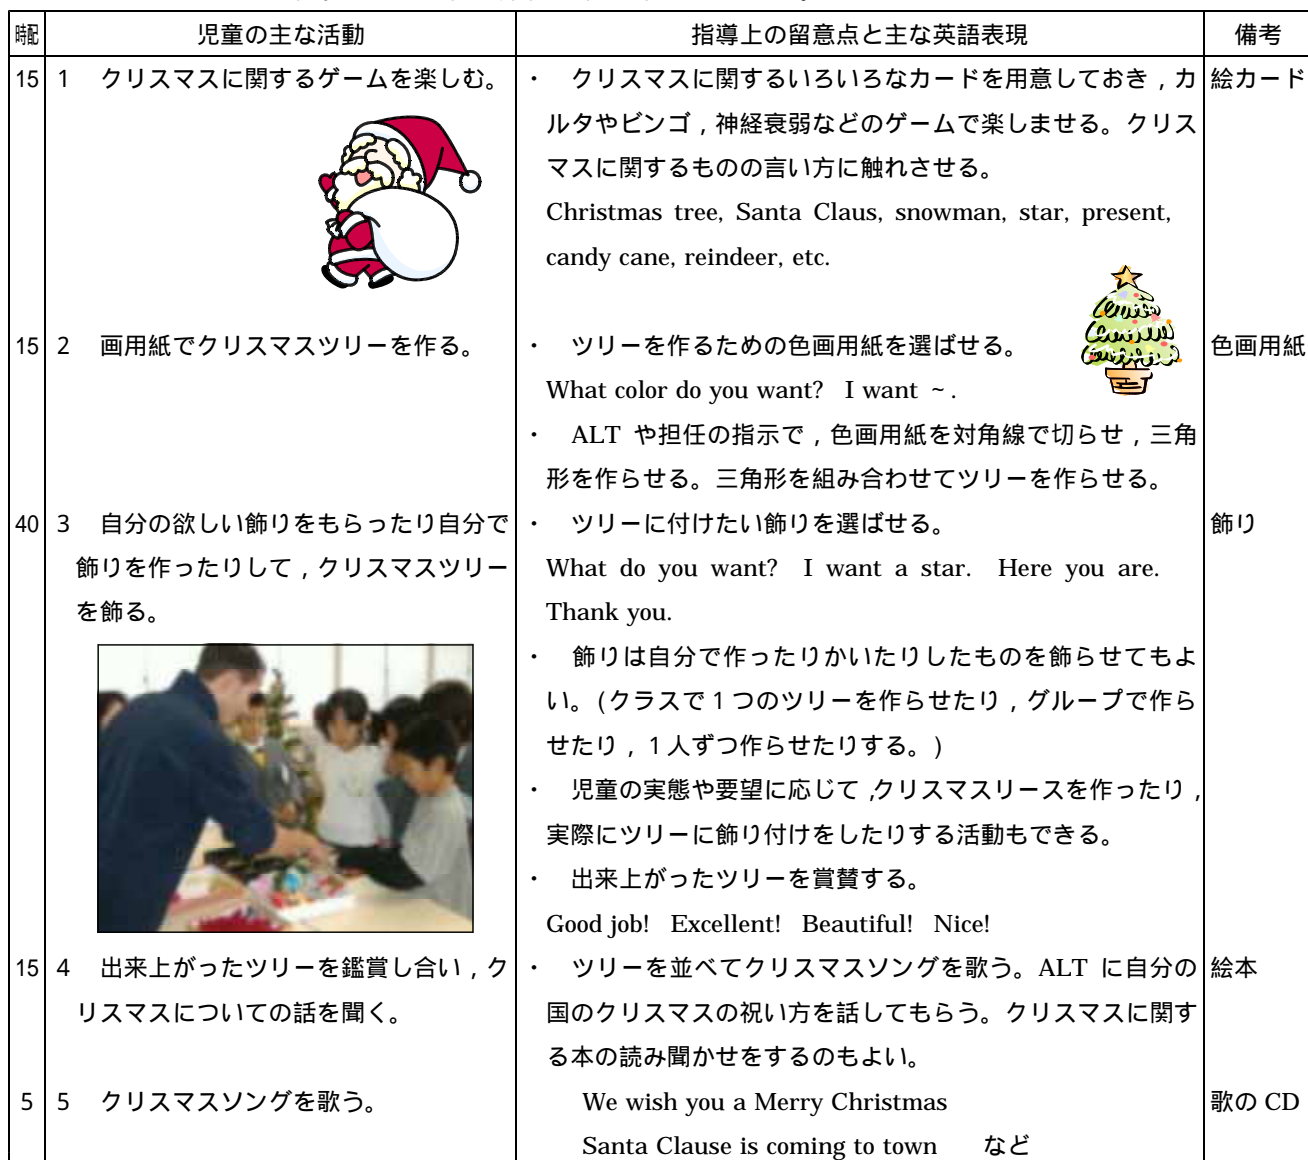 時配 児童の主な活動 指導上の留意点と主な英語表現 備考
15 1 クリスマスに関するゲームを楽しむ。 ・ クリスマスに関するいろいろなカードを用意しておき，カ 絵カード
ルタやビンゴ，神経衰弱などのゲームで楽しませる。クリス
マスに関するものの言い方に触れさせる。
Christmas tree, Santa Claus, snowman, star, present,
candy cane, reindeer, etc.
15 2 画用紙でクリスマスツリーを作る。 ・ ツリーを作るための色画用紙を選ばせる。 色画用紙
What color do you want? I want ~ .
・ ALT や担任の指示で，色画用紙を対角線で切らせ，三角
形を作らせる。三角形を組み合わせてツリーを作らせる。
40 3 自分の欲しい飾りをもらったり自分で ・ ツリーに付けたい飾りを選ばせる。 飾り
飾りを作ったりして，クリスマスツリー What do you want? I want a star. Here you are.
を飾る。 Thank you.
・ 飾りは自分で作ったりかいたりしたものを飾らせてもよ
い。(クラスで１つのツリーを作らせたり，グループで作ら
せたり，１人ずつ作らせたりする。)
・ 児童の実態や要望に応じて，クリスマスリースを作ったり，
実際にツリーに飾り付けをしたりする活動もできる。
・ 出来上がったツリーを賞賛する。
Good job! Excellent! Beautiful! Nice!
15 4 出来上がったツリーを鑑賞し合い，ク ・ ツリーを並べてクリスマスソングを歌う。ALT に自分の 絵本
リスマスについての話を聞く。 国のクリスマスの祝い方を話してもらう。クリスマスに関す
る本の読み聞かせをするのもよい。
5 5 クリスマスソングを歌う。 We wish you a Merry Christmas 歌の CD
Santa Clause is coming to town など